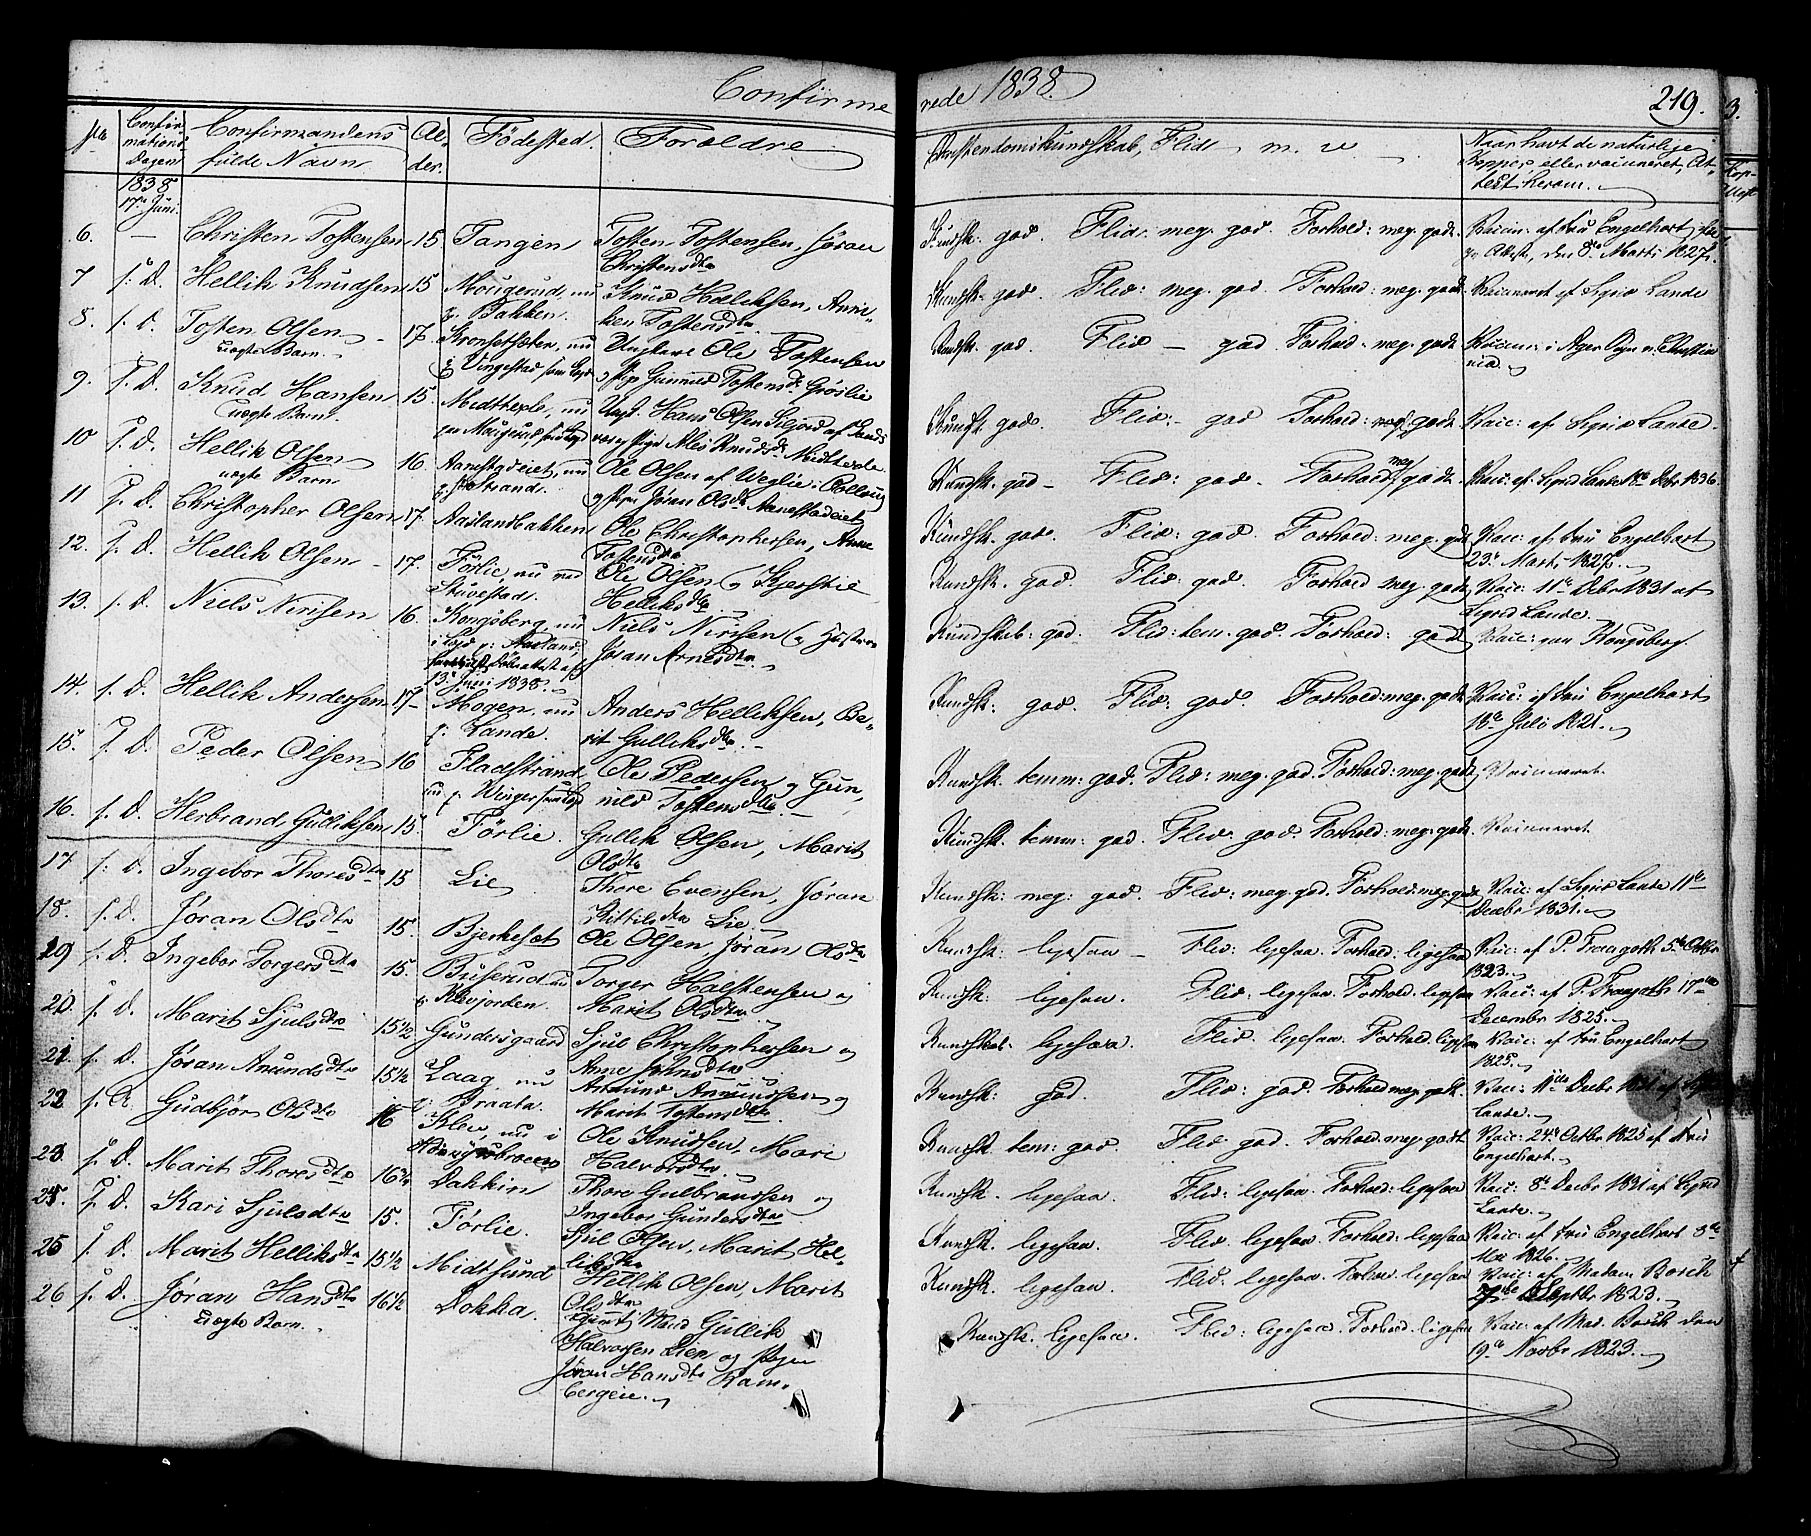 Confirme
rede 1838.
219.
No
Confirmations Dagen
Confirmandens fulde Navn
Alder.
Födested.
Forældre
Christendomskundskab, Flid m. v.
Naar havt de naturlige Kopper eller vaccineret, Attest herom.
1838
17de Juni.
6. — Christen Tostensen 15 Tangen Tosten Tostensen, Jöran Christensdtr Kundsk: god. Flid: meg. god Forhold: meg. godt Vaccin: af Fru Engelhart
Attest, den 8de Marts 1827.
7 s: D. Hellik Knudsen 15 Mougerud, nu Bakken. Knud Helliksen, Anniken Tostensdtr Kundsk: god. Flid: meg. god Forhold: meg. godt Vaccineret af Sigrid Lande
8. s. D. Tosten Olsen 17. nu
uægte Barn. Vingestad Ungkarl Ole Tostensen
og Pige Gunnild Tostensdtr Gröslie Kundsk: god. Flid — god Forhold: meg. godt Vaccin: i Ager Sogn v. Christiania
9. s. D. Knud Hansen 15. nu
uægte Barn. Mougerud Ungk. Hans Olsen
Pige Knudsdtr Kundsk. god. Flid — god Forhold: godt Vaccin: af Sigrid Lande.
10 s. D. Hellik Olsen 16. Aanestadeiet, nu
uægte Barn Strand. Ole Olsen af Weglie i Rollaug
og Pigen Jöran Olsdtr Aanestadeiet Kundsk. god — Flid: god. Forhold meg godt. Vacc: af Sigrid Lande 18de Debr 1836
11 s. D. Christopher Olsen 17. Aaslandbakken Ole Christophersen, Anne Tostensdtr Kundsk. god. Flid: god. Forhold: meg. godt Vacc: af Fru Engelhart
23de Marts 1827.
12. s. D. Hellik Olsen 17. Förlie, nu ved
Stuvestad. Ole Olsen, Kjerstie
Helliksdtr Kundsk. god. Flid: god. Forhold meg. godt Vacc: 11te Debr 1831 af
Sigrid Lande.
13. s. D. Niels Nirisen 16 Kongsberg, nu
Aasland,
13de Juni 1838. Niels Nirisen
Jöran Arnesdtr Kundskab: god. Flid: tem. god. Forhold: godt Vacc: paa Kongsberg.
14. s. D. Hellik Andersen 17 Mogen, nu
Lande. Anders Helliksen, Berit Gulliksdtr Kundsk: god. Flid: god. Forhold: meg. godt Vacc: af Fru Engelhart
18de Juli 1821.
15. s. D. Peder Olsen 16 Fladstrand
nu Ole Pedersen og Gunnild Tostensdtr Kundsk. temm: god. Flid: meg. god. Forhold: meg. godt Vaccineret.
16. s. D. Herbrand Gulliksen 15. Förlie. Gullik Olsen, Marit
Olsdtr Kundsk. temm: god. Flid god. Forhold: meg. godt Vaccineret
17 s: D. Ingebor Thoresdtr 15 Lie Thore Evensen, Jöran
Kittilsdtr Lie Kundsk: meg: god. Flid: meg. god. Forhold: meg. godt Vacc: af Sigrid Lande 11te
Decbr 1831.
18. s. D. Jöran Olsdtr 15. Bjerkeset Ole Olsen Jöran Olsdtr Kundsk. ligesaa — Flid: ligesaa. Forhold. ligesaa Vacc: af P. Traagoth 5te Octbr
1823.
19 s. D. Ingebor Torgersdtr 15. Buserud nu
Klevjorden. Torger Halstensen og
Marit Olsdtr Kundsk: ligesaa. Flid: ligesaa. Forhold. ligesaa Vacc: af P. Traagoth 17de
December 1825.
20. s. D. Marit Sjulsdtr 15½ Gundersgaard Sjul Christophersen og
Anne Johnsdtr Kundskab: ligesaa. Flid. ligesaa. Forhold. ligesaa Vacc: af Fru Engelhart
1825.
21. s. D. Jöran Anundsdtr 15½ Laag, nu
Braata. Anund Anundssen og
Marit Tostensdtr. Kundsk: god. Flid: god. Forhold meg. godt. Vacc: 11te Decbr 1831 af
Lande.
22 Gudbjör Olsdtr 16 Klev, nu i Ole Knudsen, Mari
Halvorsdtr Kundsk. tem: god. Flid god. Forhold: meg. godt Vacc: 24de Octbr 1825 af Fru
Engelhart.
23. s. D. Marit Thoresdtr Dokkin Thore Gulbrandssen og
Ingebor Gundersdtr Kundsk. ligesaa. Flid: ligesaa. Forhold: ligesaa Vacc: 8de Decbr 1821 af Sigrid
Lande.
25. s. D. Kari Sjulsdtr 15. Förlie. Sjul Olsen, Marit Helliksdtr Kundsk. ligesaa. Flid. ligesaa. Forhold: ligesaa Vacc: af Fru Engelhart 8de
1826.
25 s. D. Marit Helliksdtr 15½ Midtsund Hellik Olsen, Marit
Olsdtr Kundsk. ligesaa. Flid. ligesaa. Forhold. ligesaa Vacc: af Madam Borch
Septbr 1823.
26 s. D. Jöran Hansdtr 16½ Dokka.
uægte Barn. Mand Gullik
Halvorsen Lien og Pigen
Jöran Hansdtr Rambergeie. Kundsk. ligesaa. Flid: ligesaa. Forhold. ligesaa Vacc: af Mad. Borch den
19de Novbr 1823.